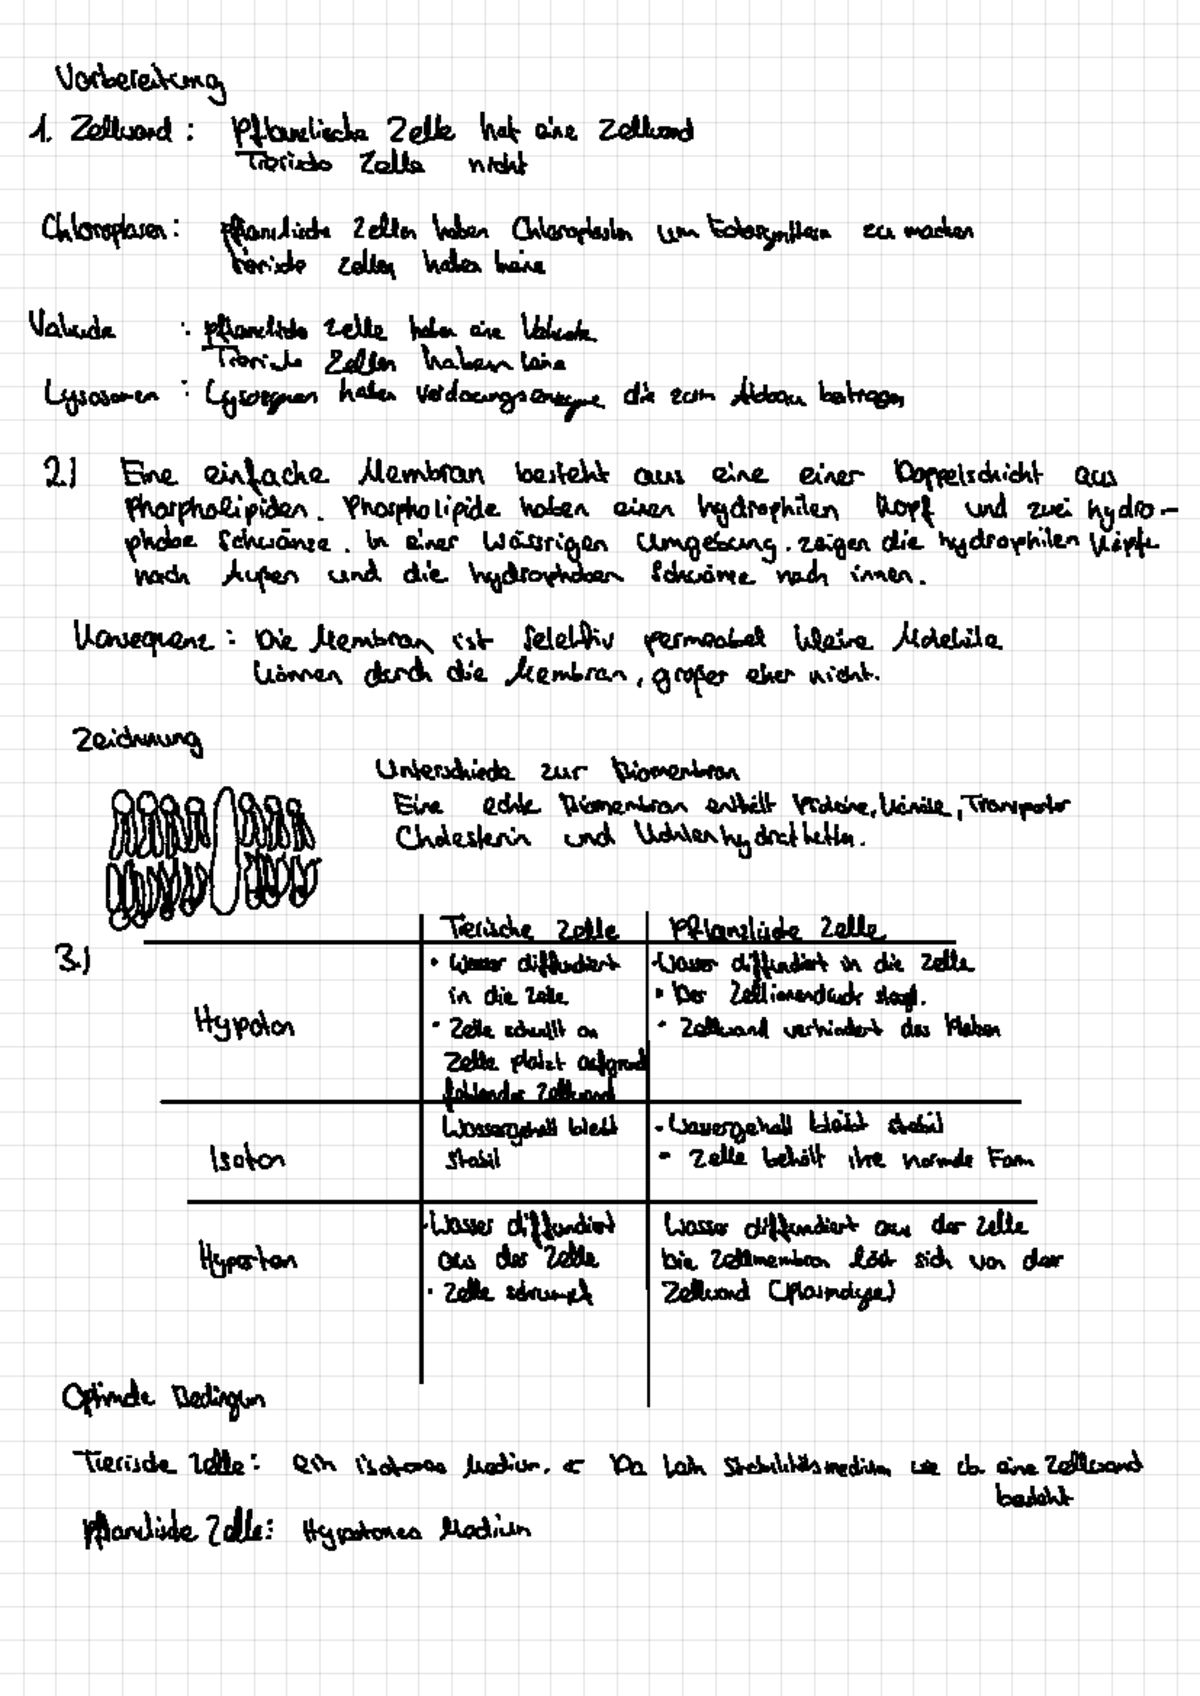 Vorbereitung
1. Zellwand: Pflanzliche Zelle hat eine Zellwand
Tierische Zelle nicht
Chloroplasen: pflanzliche Zellen haben Chloroplasten um Fotosynthese zu machen
tierische Zellen haben keine
Vakuole : pflanzliche Zelle haben eine Vakuole
Tierische Zellen haben keine
Lysosomen : Lysosomen haben Verdauungsenzyme die zum Abbau beitragen
2.) Eine einfache Membran besteht aus eine einer Doppelschicht aus
Phospholipiden. Phospholipide haben einen hydrophilen Kopf und zwei hydro-
phobe Schwänze. In einer Wässrigen Umgebung. zeigen die hydrophilen Köpfe
nach Außen und die hydrophoben Schwänze nach innen.
Konsequenz: Die Membran ist Selektiv permeabel kleine Moleküle
können durch die Membran, großer eher nicht.
Zeichnung
Unterschiede zur Biomembran
Eine echte Biomembran enthält Proteine, Kanäle, Transporter
Cholesterin und Kohlenhydratketten.
Tierische Zelle Pflanzliche Zelle
3.)
• Wasser diffundiert Wasser diffundiert in die Zelle
in die Zelle • Der Zellinnendruck steigt.
Hypoton • Zelle schwillt an • Zellwand verhindert das
Zelle platzt aufgrund
fehlender Zellwand
Wassergehalt bleibt - Wassergehalt bleibt stabil
Isoton stabil - Zelle behält ihre normale Form
• Wasser diffundiert Wasser diffundiert aus der Zelle
Hyperton aus der Zelle Die Zellmembran löst sich von der
• Zelle schrumpft Zellwand (Plasmolyse)
Optimale
Tierische Zelle: ein isotones Medium. Da kein Stabilitätsmedium wie eine Zellwand
besteht
Pflanzliche Zelle: Hypotones Medium